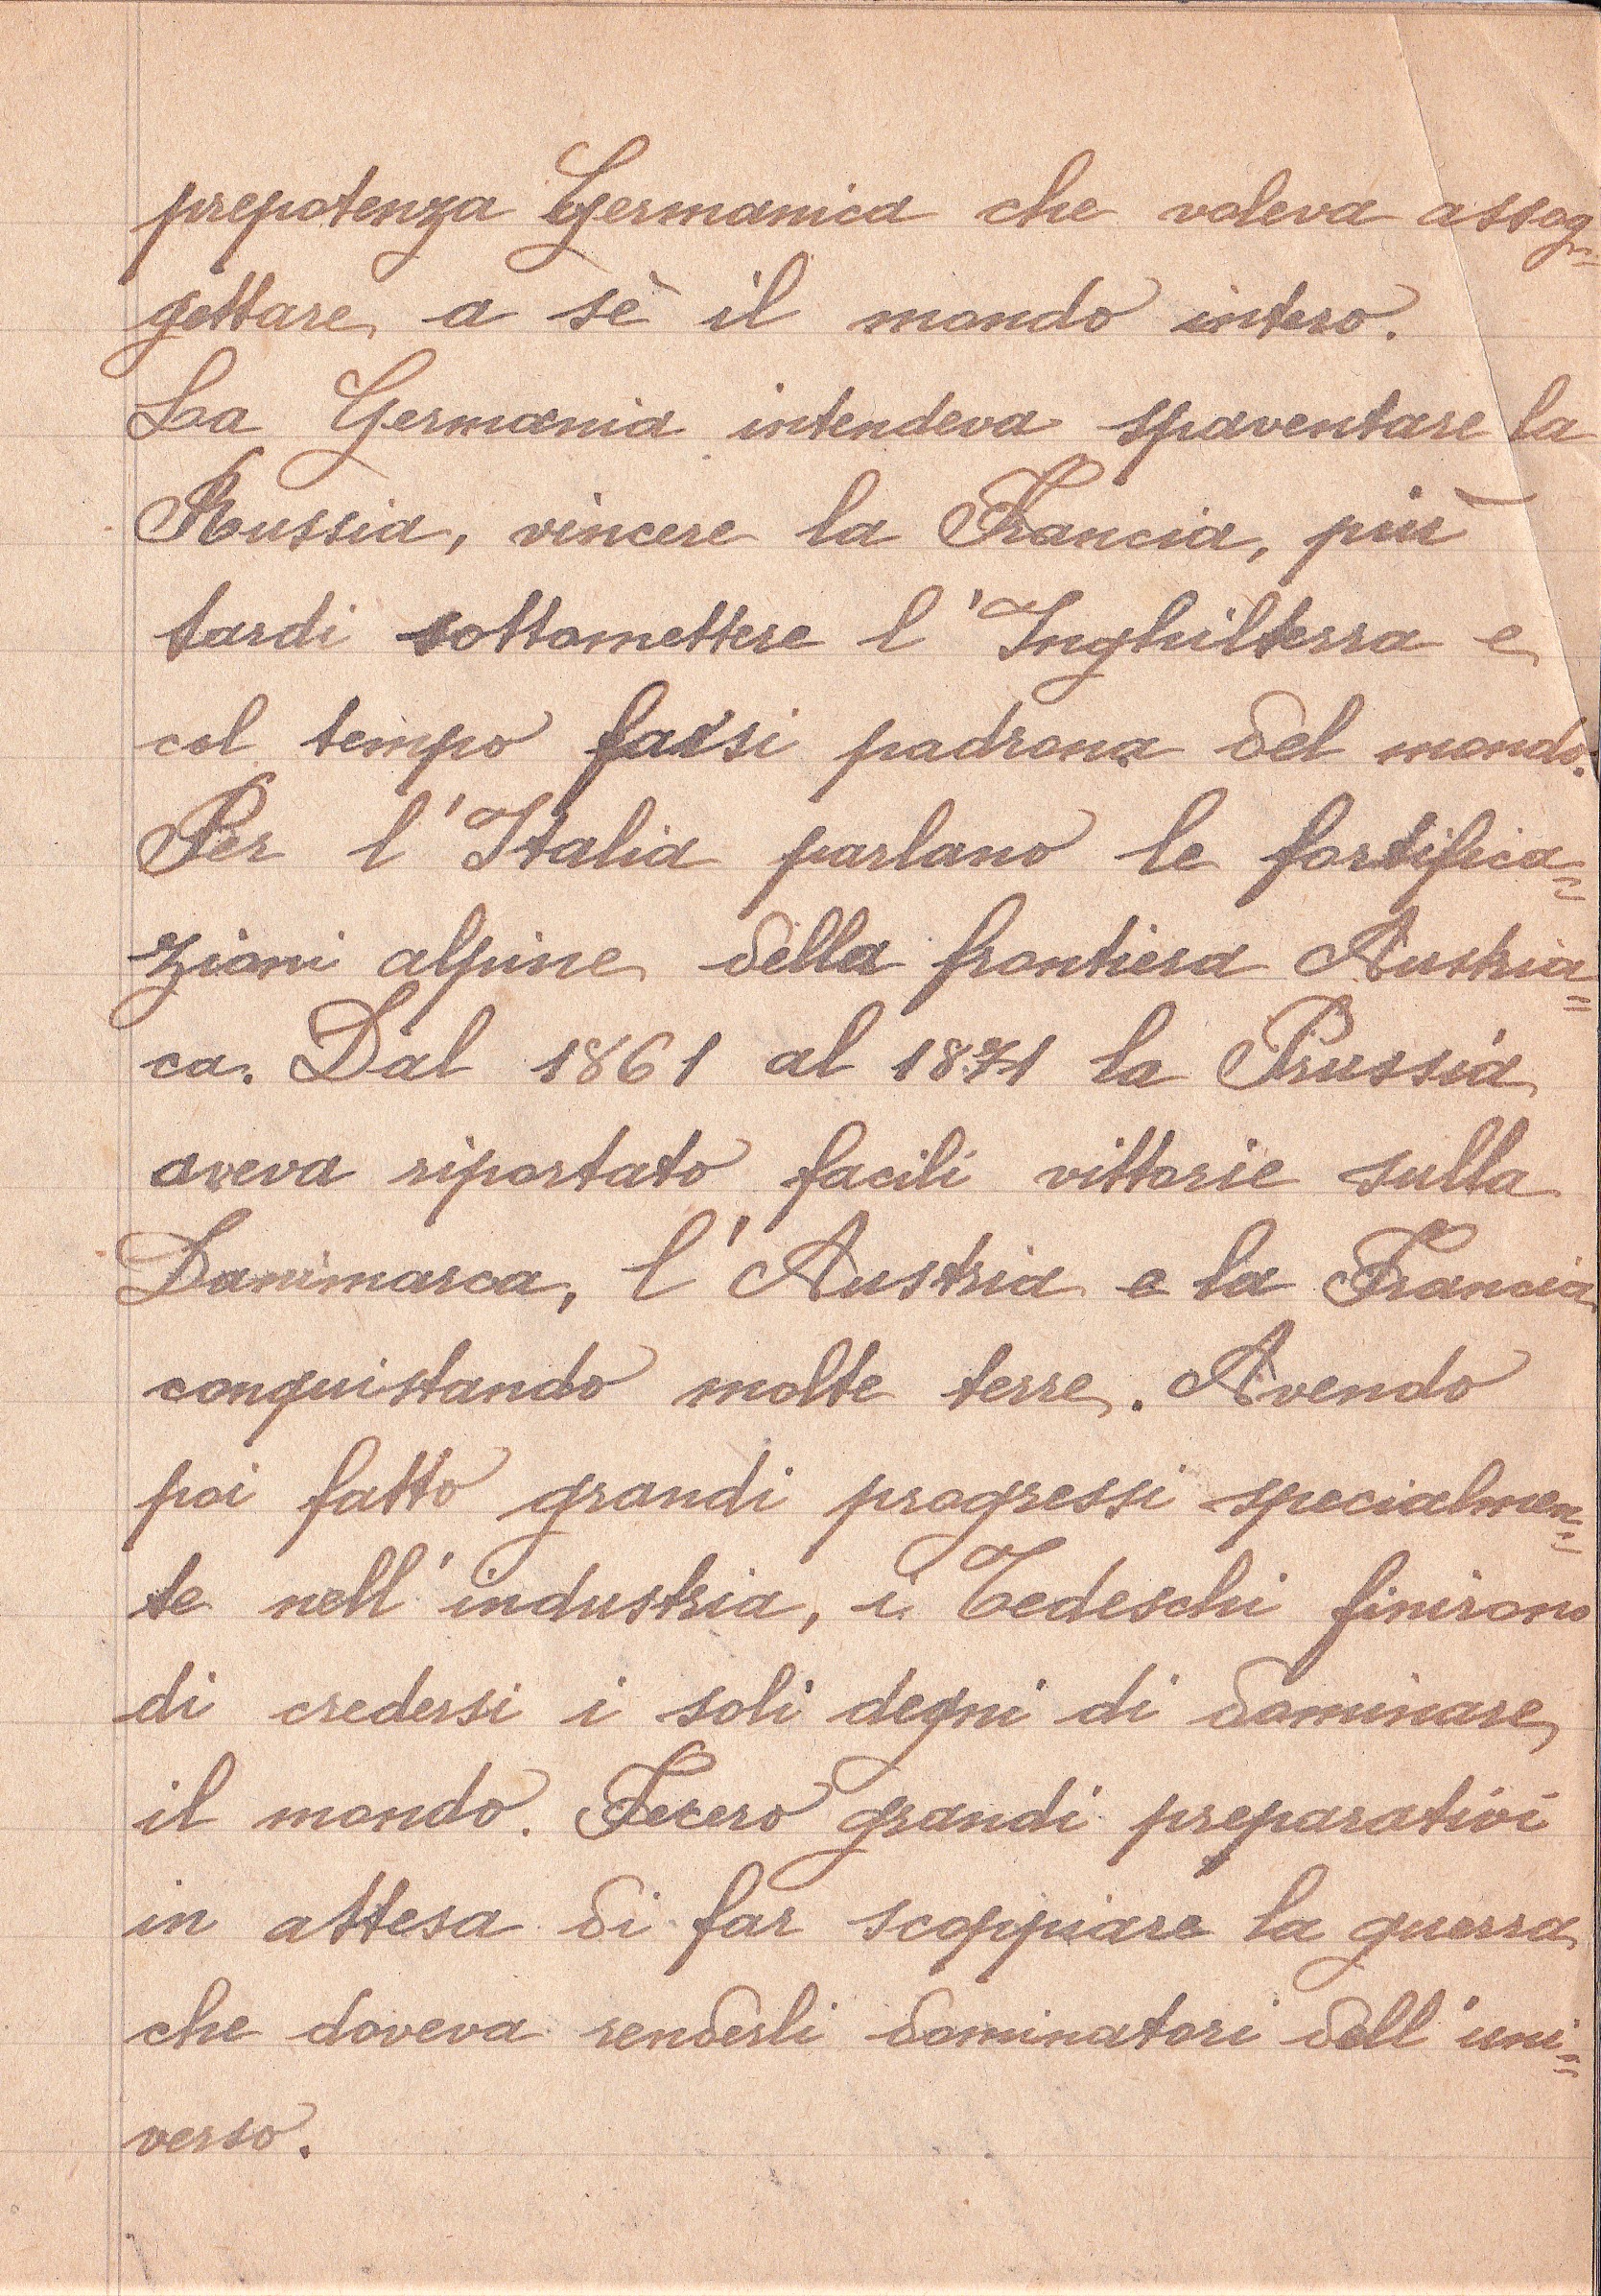 prepotenza Germanica che voleva assog=
gettare a sè il mondo intero.
La Germania intendeva spaventare la
Russia, vincere la Francia, più
tardi sottomettere l'Inghilterra e
col tempo farsi padrona del mondo.
Per l'Italia parlano le fortifica=
zioni alpine della frontiera Austria=
ca. Dal 1861 al 1871 la Prussia
aveva riportato facili vittorie sulla
Danimarca, l'Austria e la Francia
conquistando molte terre. Avendo
poi fatto grandi progressi specialmen=
te nell'industria, i Tedeschi finirono
di credersi i soli degni di dominare
il mondo. Fecero grandi preparativi
in attesa di far scoppiare la guerra
che doveva renderli dominatori dell'uni=
verso.